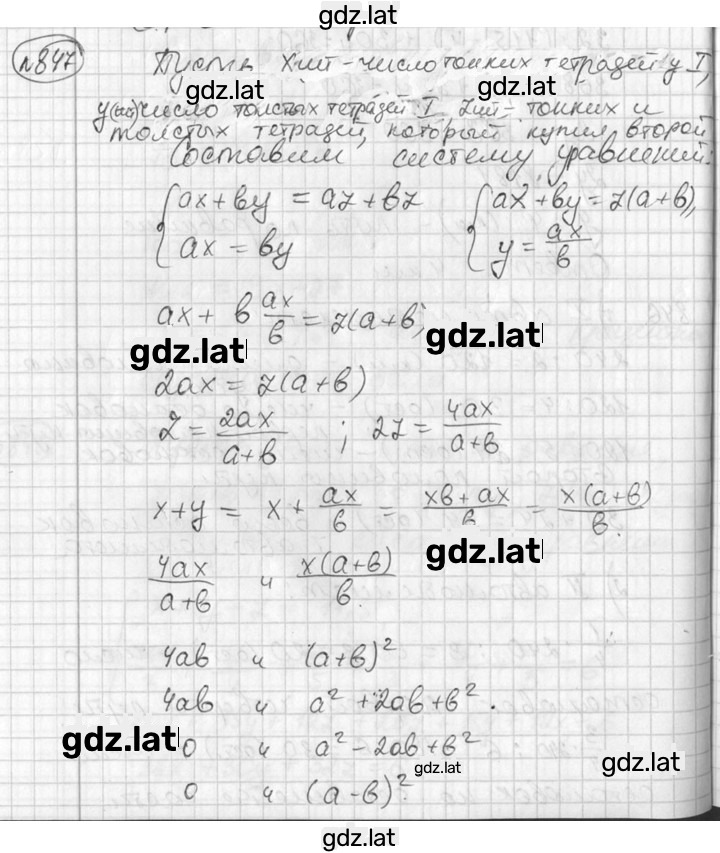 gdz.latl
№847 Пусть x шт - число тонких тетрадей у I,
gdz.latl
gdz.latl
y(шт) число толстых тетрадей I, z шт - тонких и
толстых тетрадей, который купил второй
Составим систему уравнений:
{ax + by = az + bz {ax + by = z(a+b),
{ax = by {y = ax/b
ax + b ax/b = z(a+b)
gdz.latl
gdz.latl
2ax = z(a+b)
z = 2ax/(a+b) ; 2z = 4ax/(a+b)
x+y = x + ax/b = (xb+ax)/b = x(a+b)/b.
gdz.latl
4ax/(a+b) и x(a+b)/b.
4ab и (a+b)²
4ab и a² + 2ab + b².
gdz.latl
0 и a² - 2ab + b²
gdz.lat
gdz.latl
0 и (a-b)².
gdz.lat